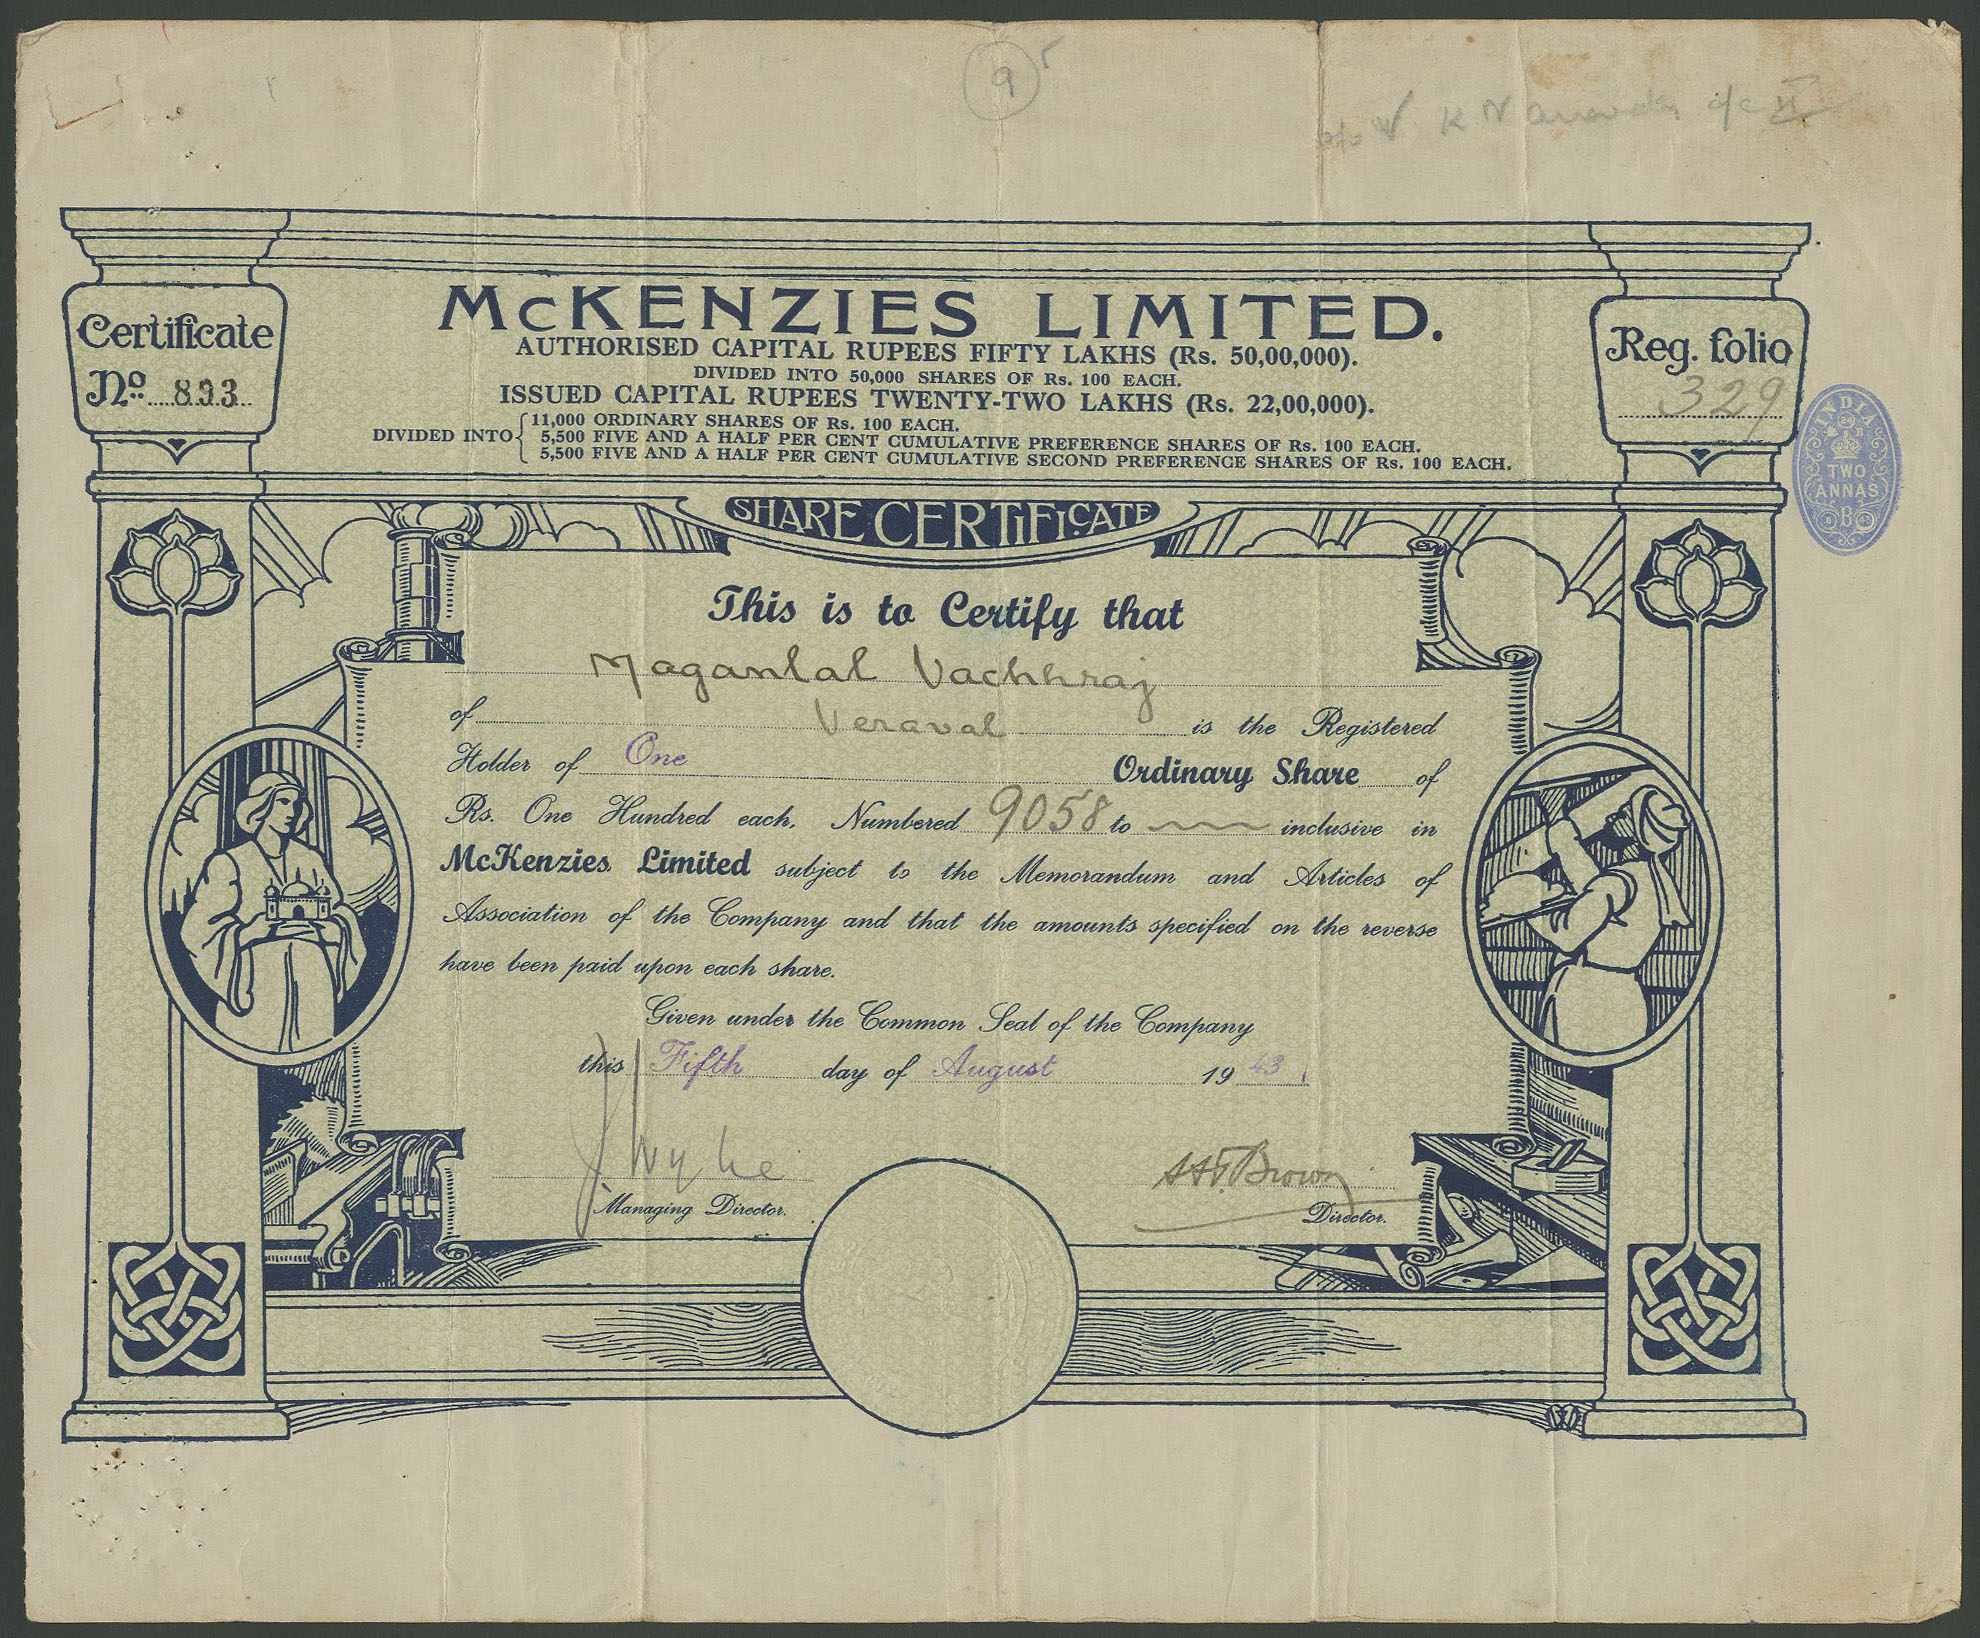 9
McKENZIES LIMITED.
AUTHORISED CAPITAL RUPEES FIFTY LAKHS (Rs. 50,00,000).
DIVIDED INTO 50,000 SHARES OF Rs. 100 EACH.
ISSUED CAPITAL RUPEES TWENTY-TWO LAKHS (Rs. 22,00,000).
DIVIDED INTO { 11,000 ORDINARY SHARES OF Rs. 100 EACH.
5,500 FIVE AND A HALF PER CENT CUMULATIVE PREFERENCE SHARES OF Rs. 100 EACH.
5,500 FIVE AND A HALF PER CENT CUMULATIVE SECOND PREFERENCE SHARES OF Rs. 100 EACH.
Certificate
No. 893
Reg. folio
329
INDIA
TWO
ANNAS
B
SHARE CERTIFICATE
This is to Certify that
Maganlal Vachhraj
of Veraval is the Registered
Holder of One Ordinary Share of
Rs. One Hundred each, Numbered 9058 to inclusive in
McKenzies Limited subject to the Memorandum and Articles of
Association of the Company and that the amounts specified on the reverse
have been paid upon each share.
Given under the Common Seal of the Company
this Fifth day of August 1943
Brown
Managing Director.
Director.